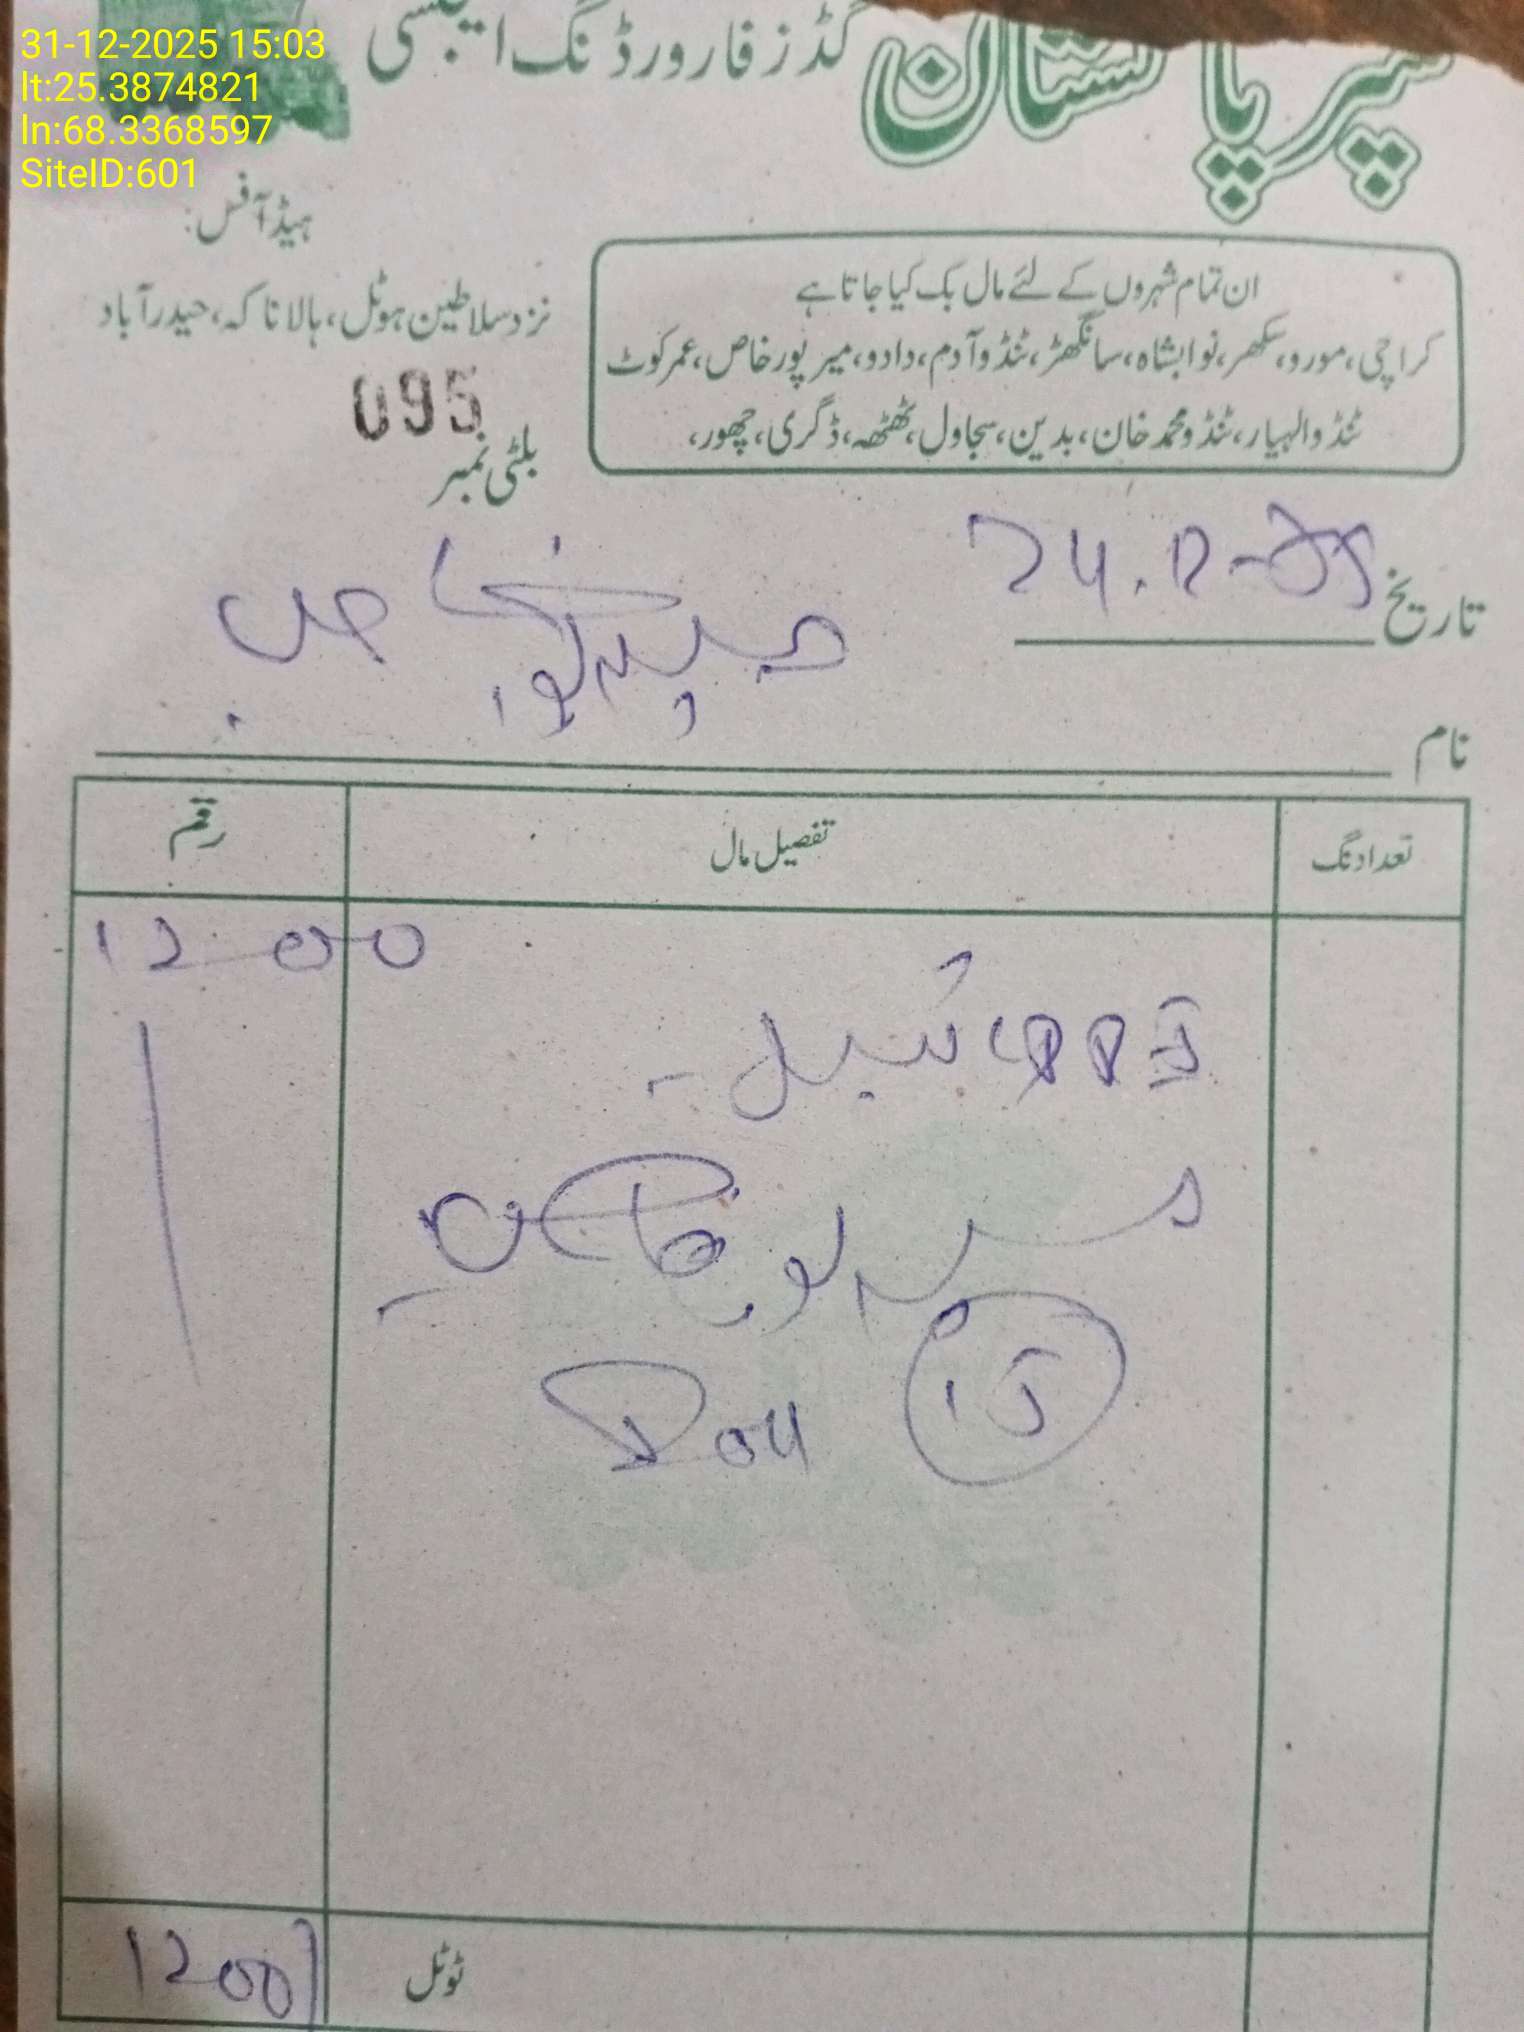 31-12-2025 15:03
lt:25.3874821
ln:68.3368597
SiteID:601
سپر پاکستان گڈز فارورڈنگ ایجنسی
ہیڈ آفس:
نزد سلاطین ہوٹل، ہالا ناکہ، حیدرآباد
ان تمام شہروں کے لئے مال بک کیا جاتا ہے
کراچی، مورو، سکھر، نوابشاہ، سانگھڑ، ٹنڈوآدم، دادو، میرپورخاص، عمرکوٹ
ٹنڈوالہیار، ٹنڈومحمدخان، بدین، سجاول، ٹھٹھہ، ڈگری، چھور،
بلٹی نمبر 095
تاریخ 24.12-25
نام
تعداد نگ تفصیل مال رقم
1200
میرپور خاص
ٹوٹل 1200/